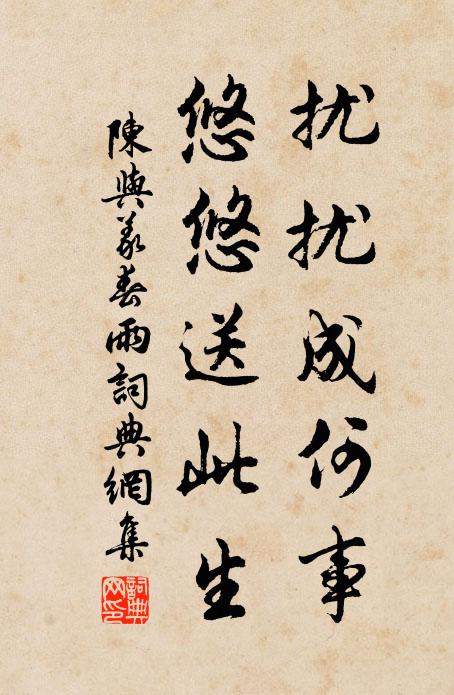 扰扰成何事
悠悠送此生
陳與義春雨詞典網集
詞典网印